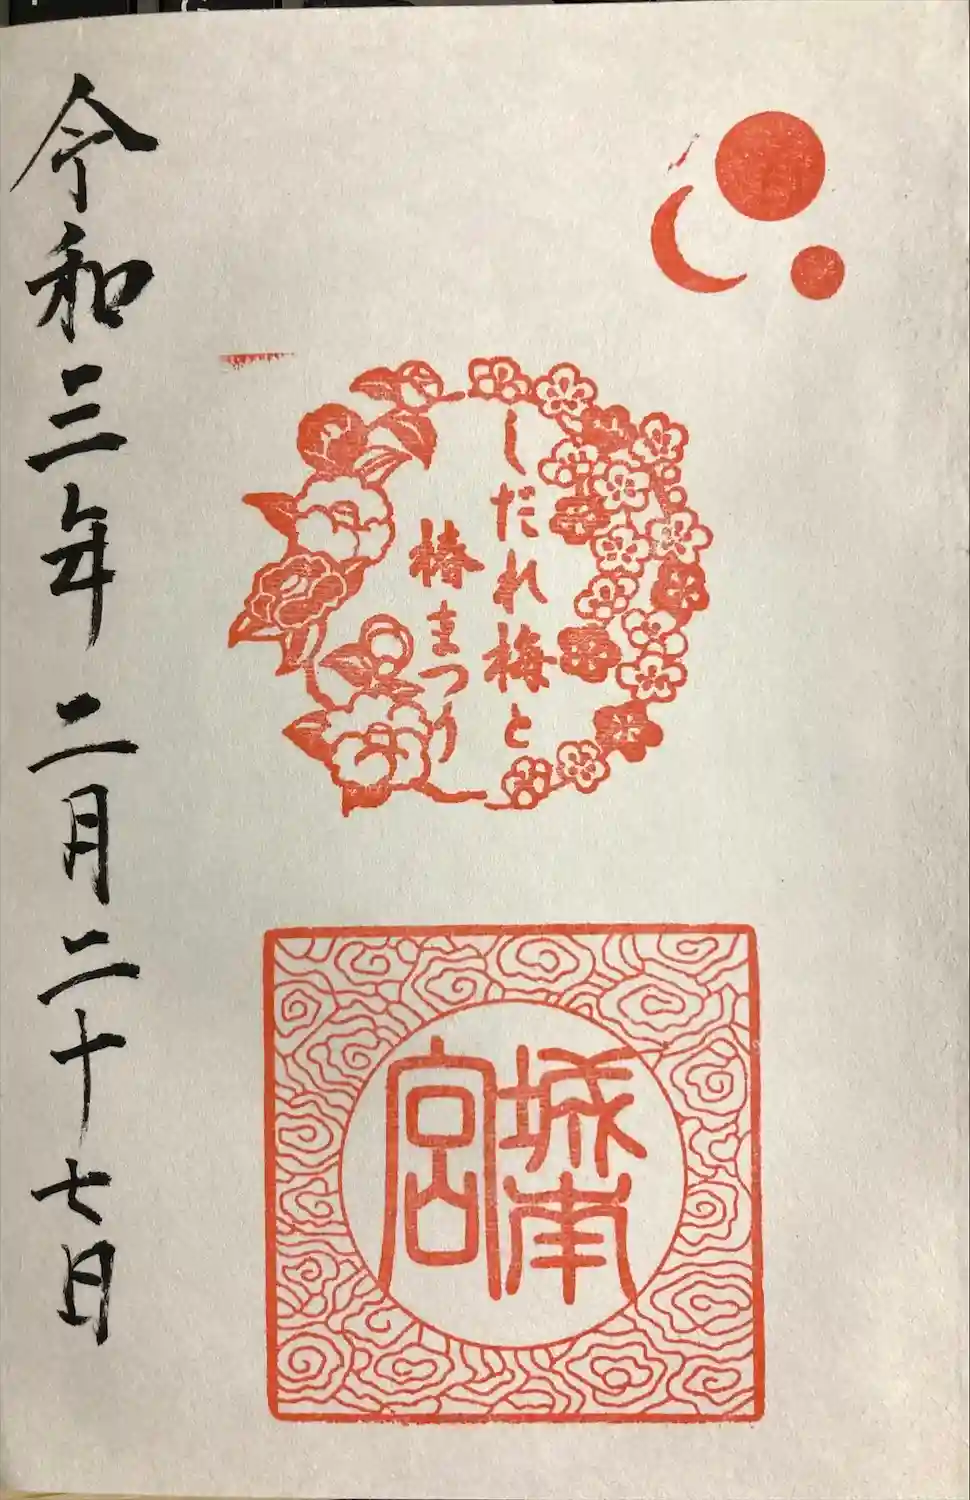 しだれ梅と
椿まつり
城南
宮
令和三年二月二十七日